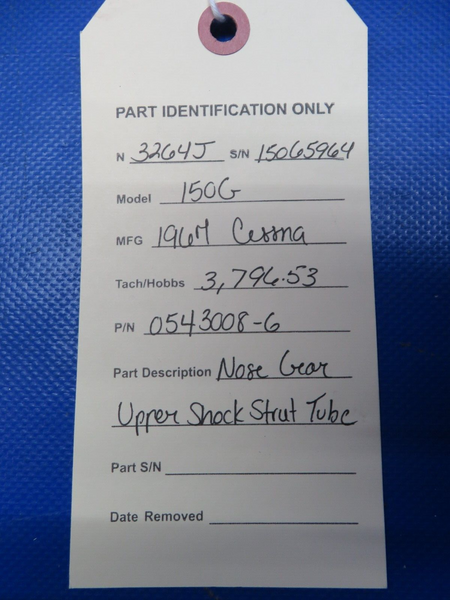 PART IDENTIFICATION ONLY
N 3264J S/N 15065964
Model 150G
MFG 1967 Cessna
Tach/Hobbs 3,796.53
P/N 0543008-6
Part Description Nose Gear
Upper Shock Strut Tube
Part S/N
Date Removed